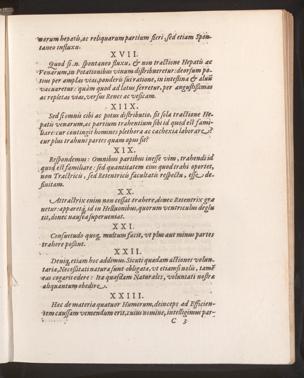 uorum hepatis, ac reliquarum partium fieri, sed etiam Spon-
taneo influxu.
XVII.
Quod si .n. spontaneo fluxu, & non tractione Hepatis ac
Venarum, in Potationibus vinum distribueretur: deorsum po-
tius per amplas vias, ponderis sui ratione, in intestina & aluū
vacuaretur: quàm quod ad latus serretur, per angustissimas
ac repletas vias, versus Renes ac vesicam.
XIIX.
Sed si omnis cibi ac potus distributio, fit sola tractione He-
patis venarum, ac partium trahentium sibi id quod est fami-
liare: cur contingit homines plethora ac cachexia laborare?
cur plus trahunt partes quàm opus sit?
XIX.
Respondemus: Omnibus partibus inesse vim, trahendi id
quod est familiare: sed quantitatem eius quod trahi oportet,
non Tractricis, sed Retentricis facultatis respectu, esse de-
finitam.
XX.
Attractrix enim non cessat trahere, donec Retentrix gra-
uetur: apparet q; id in Helluonibus, quorum ventriculus deglu
tit, donec nausea superueniat.
XXI.
Consuetudo quoq; multum facit, vt plus aut minus partes
trahere possint.
XXII.
Deniq; etiam hoc addimus. Sicuti quædam actiones volun-
tariæ, Necessitati naturæ sunt obligatæ, vt etiamsi nolis, tamē
eas cogaris edere: Ita quasdam Naturales, voluntati nostræ
aliquantum obedire.
XXIII.
Hec de materia quatuor Humorum, deinceps ad Efficien-
tem caussam veniendum erit, cuius nomine, intelligimus par-
C 3